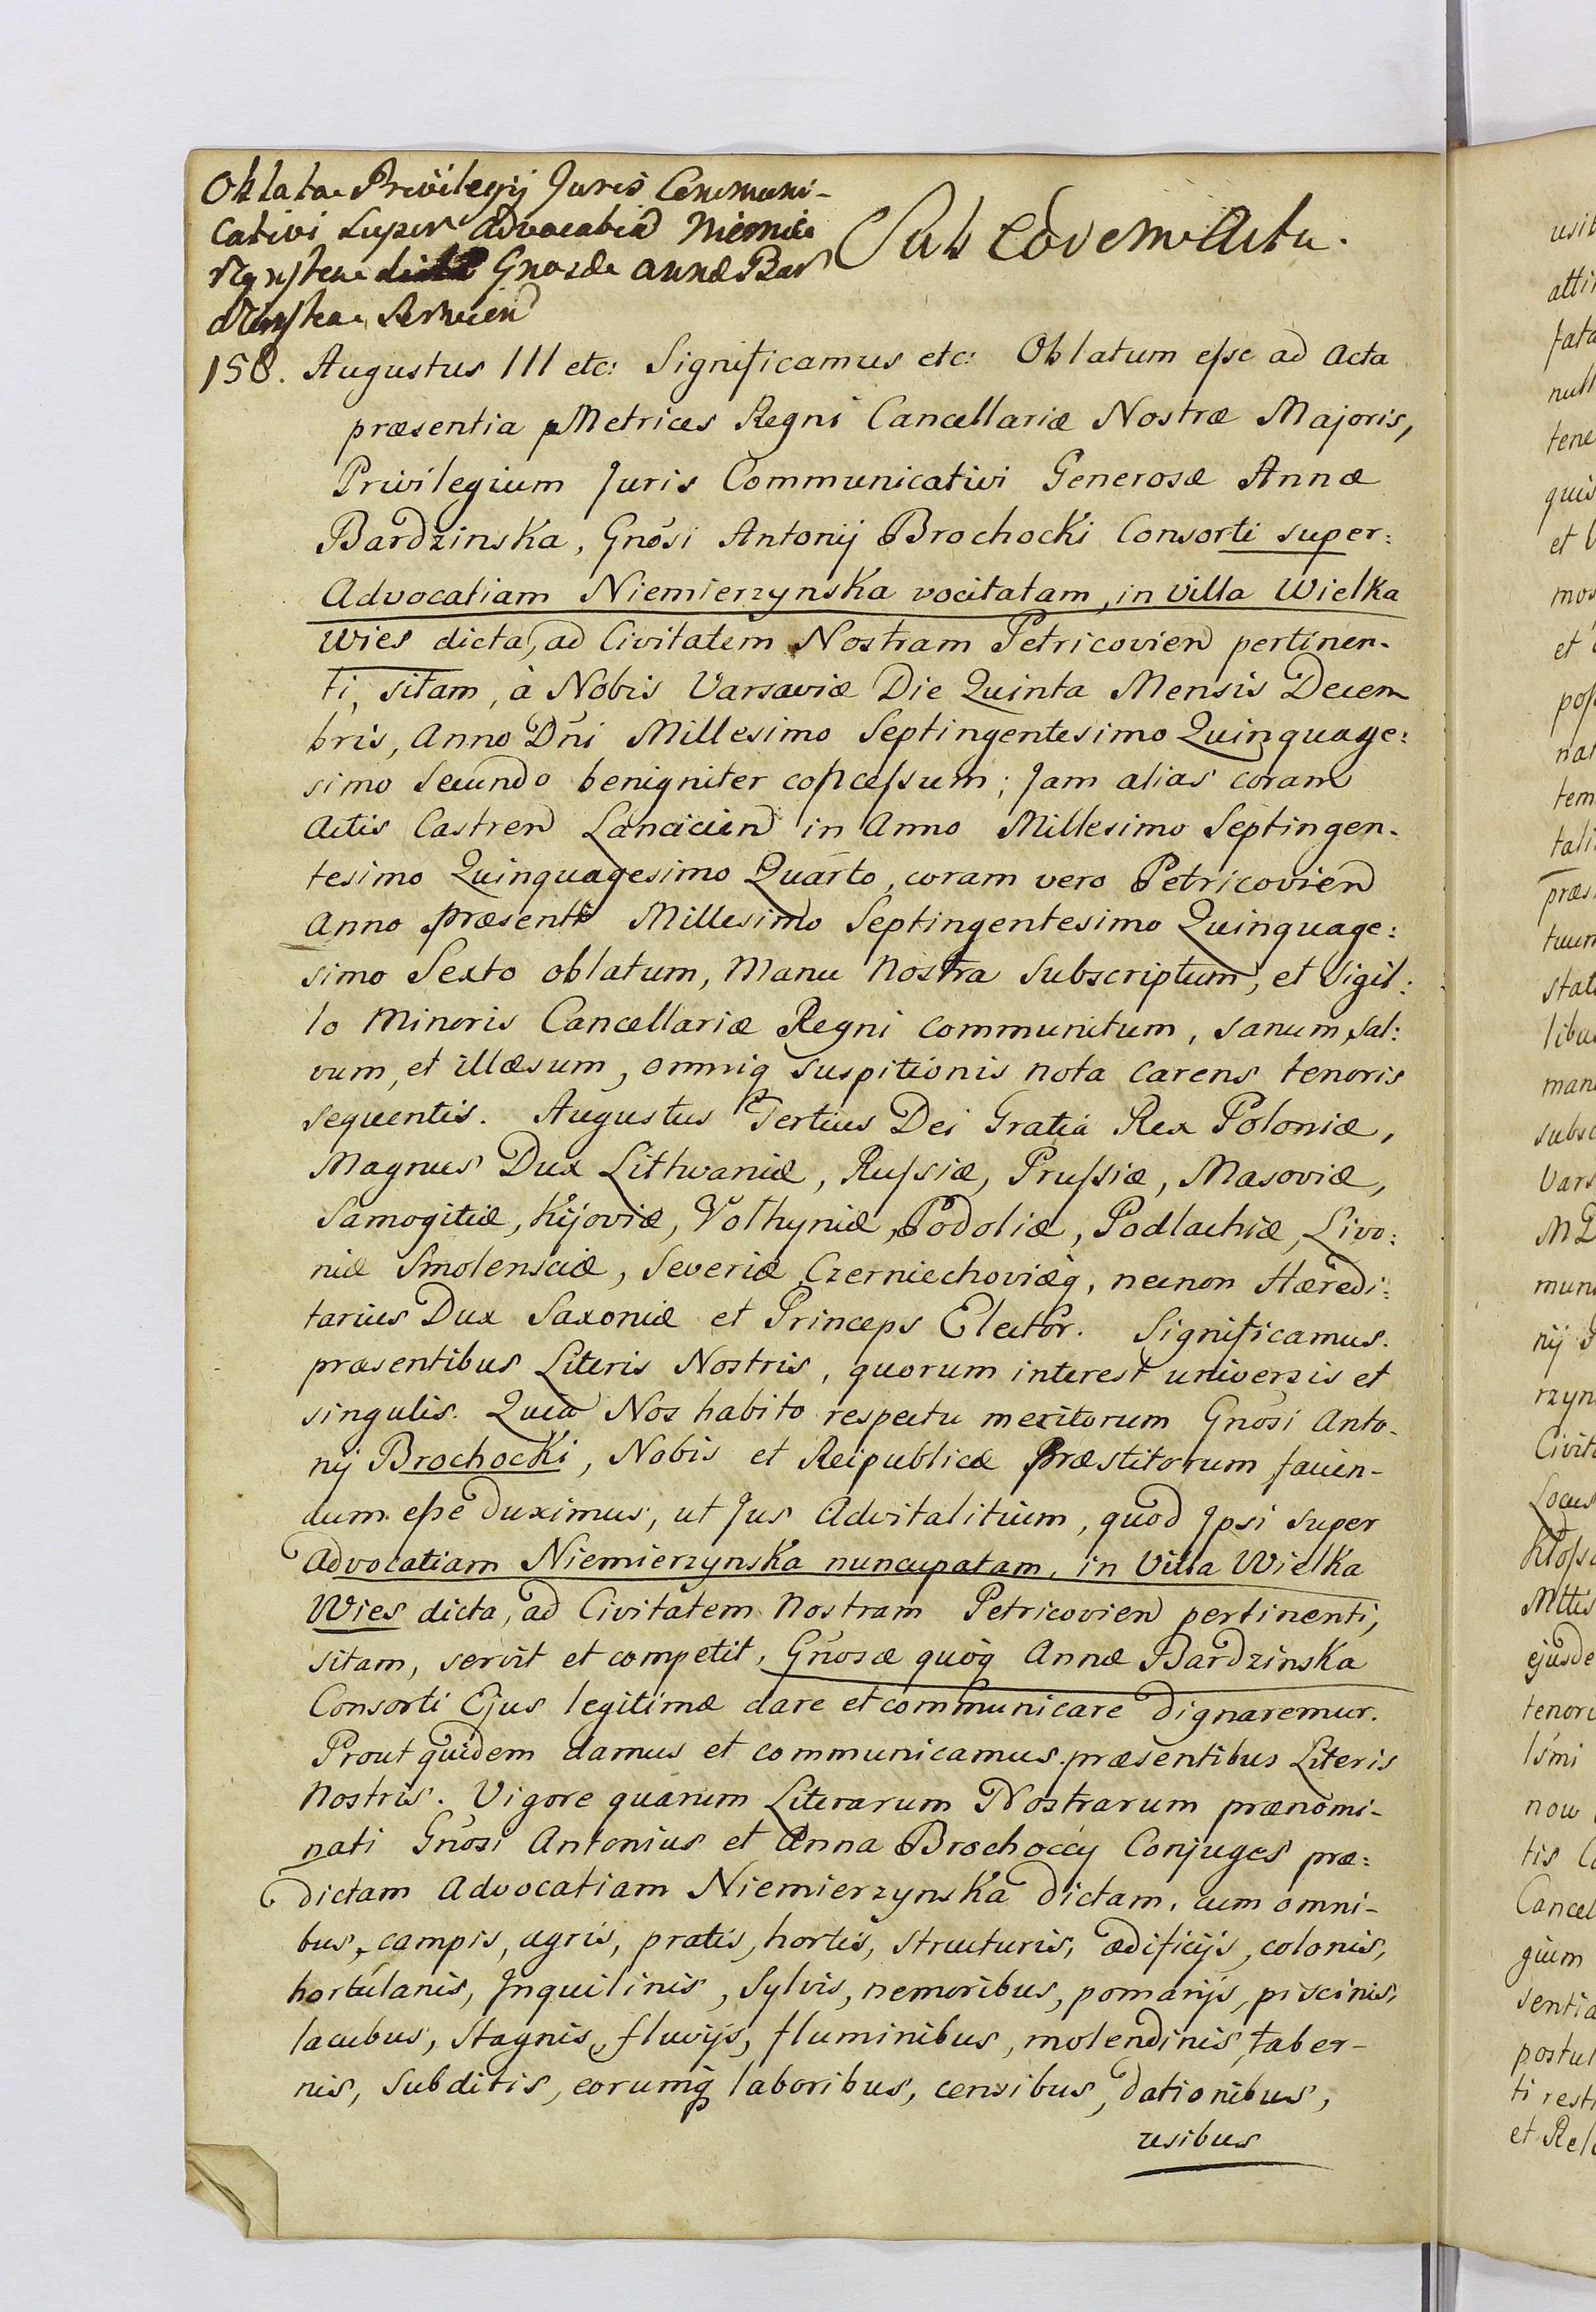 Oblata Privilegij Juris Communi-
cativi super Advocatia Niemie
rzynska Gnosæ Annæ Bar
dzinska Servien
Sub Eodem Actu.
158. Augustus III etc: Significamus etc: Oblatum eſse ad Acta
præsentia Metrices Regni Cancellariæ Nostræ Majoris,
Privilegium Juris Communicativi Generosæ Annæ
Bardzinska, Gnosi Antonij Brochocki Consorti super:
Advocatiam Niemierzynska vocitatam, in Villa Wielka
Wies dicta, ad Civitatem Nostram Petricovien pertinen-
ti, sitam, à Nobis Varsaviæ Die Quinta Mensis Decem
bris, Anno Dni Millesimo Septingentesimo Quinquage:
simo Secundo benigniter conceſsum; Jam alias coram
Actis Castren Lancicien in Anno Millesimo Septingen-
tesimo Quinquagesimo Quarto, coram vero Petricovien
Anno præsenti Millesimo Septingentesimo Quinquage:
simo Sexto oblatum, Manu Nostra Subscriptum, et Sigil:
lo Minoris Cancellariæ Regni communitum, sanum, sal:
vum, et illæsum, omniq suspitionis nota carens tenoris
sequentis. Augustus Tertius Dei Gratia Rex Poloniæ,
Magnus Dux Lithvaniæ, Ruſsiæ, Pruſsiæ, Masoviæ,
Samogitiæ, Kijoviæ, Volhyniæ, Podoliæ, Podlachiæ, Livo:
niæ Smolensciæ, Severiæ, Czerniechoviæq, necnon Hæredi:
tarius Dux Saxoniæ et Princeps Elector. Significamus.
præsentibus Literis Nostris, quorum interest universis et
singulis. Quia Nos habito respectu meritorum Gnosi Anto-
nij Brochocki, Nobis et Reipublicæ Præstitorum facien-
dum eſse duximus, ut Jus Advitalitium, quod Ipsi super
Advocatiam Niemierzynska nuncupatam, in Villa Wielka
Wies dicta, ad Civitatem Nostram Petricovien pertinenti,
sitam, servit et competit, Gnosæ quoq Annæ Bardzinska
Consorti Ejus legitimæ dare et communicare dignaremur.
Prout quidem damus et communicamus præsentibus Literis
Nostris. Vigore quarum Literarum Nostrarum prænomi-
nati Gnosi Antonius et Anna Brochoccy Conjuges præ:
dictam Advocatiam Niemierzynska dictam, cum omni-
bus, campis, agris, pratis, hortis, structuris, ædificijs, colonis,
hortulanis, Inquilinis, Sylvis, nemoribus, pomarijs, piscinis,
lacubus, Stagnis, fluvijs, fluminibus, molendinis, taber-
nis, Subditis, eorumq laboribus, censibus, dationibus,
usibus